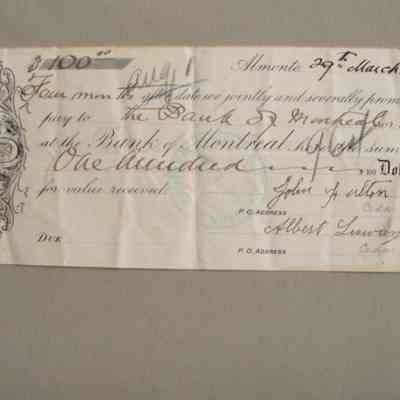 $100.00 Almonte 29th March
Aug 1
Four months after date we jointly and severally prom
pay to the Bank of Montreal or
at the Bank of Montreal here the sum
One hundred 100 Dol
for value received. John
P. O. ADDRESS
Albert
DUE P. O. ADDRESS